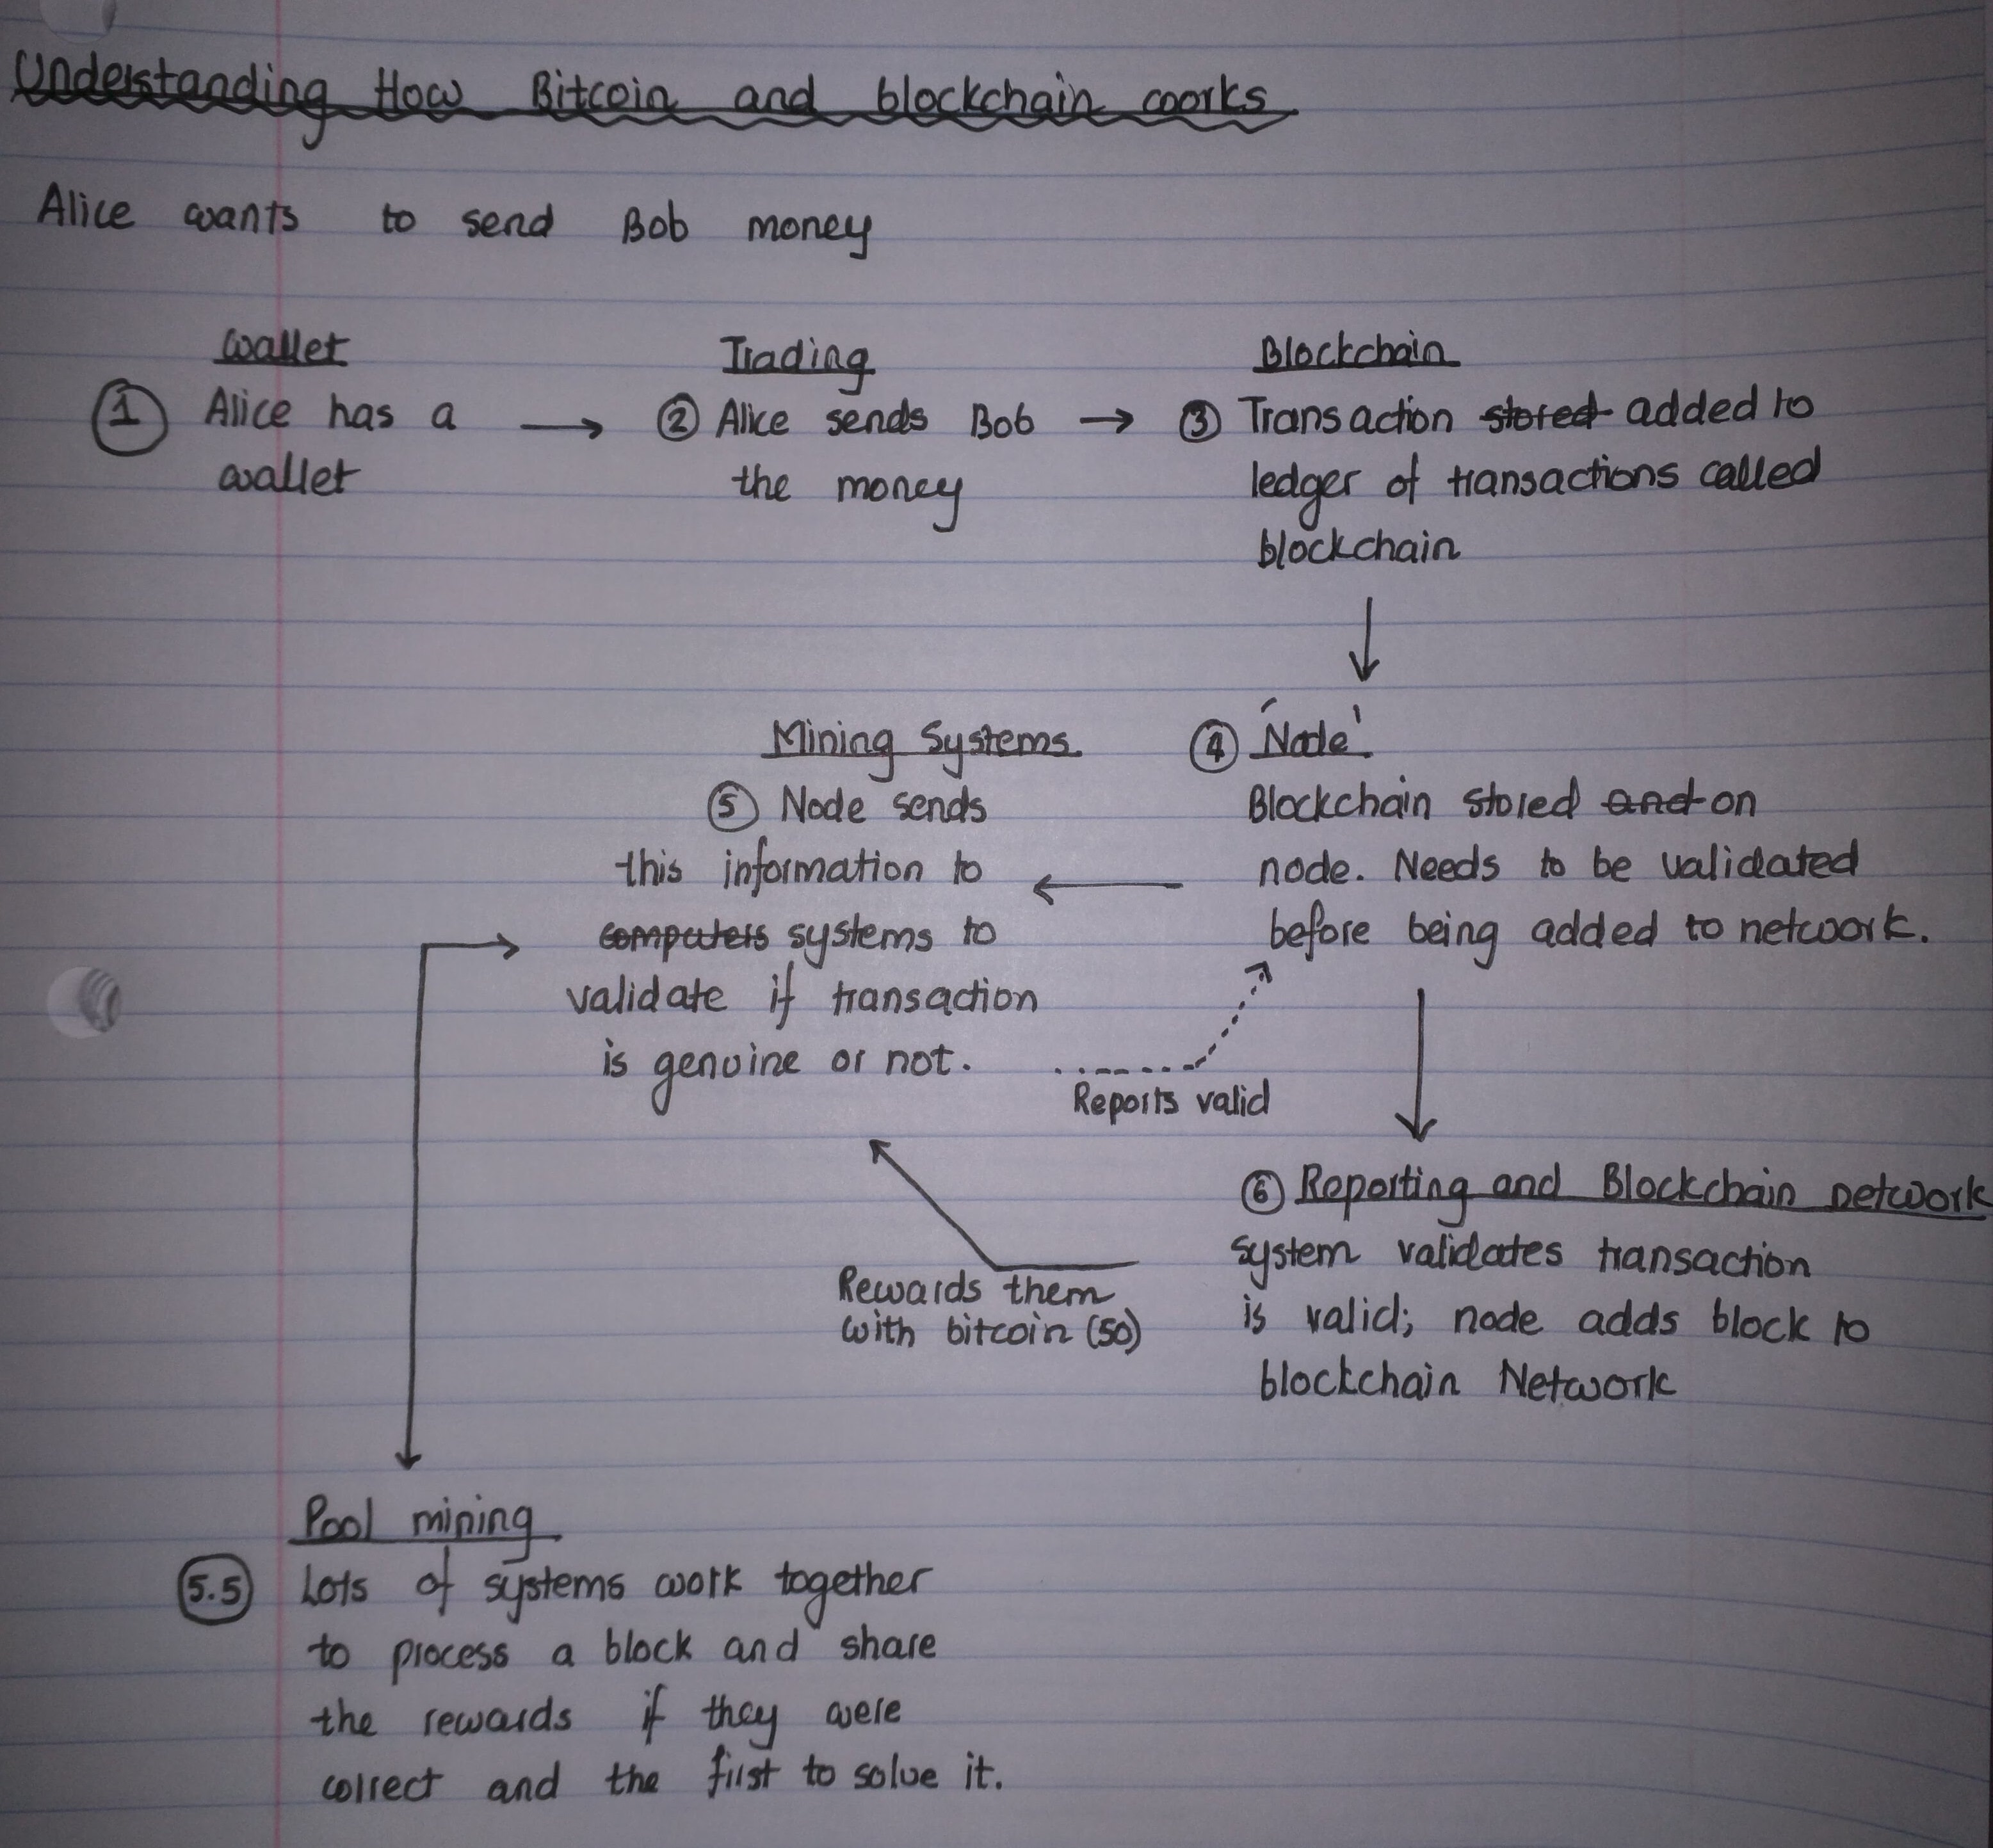 Understanding How Bitcoin and blockchain works
Alice wants to send Bob money
Wallet
1 Alice has a
wallet
Trading
2 Alice sends Bob
the money
Blockchain
3 Transaction stored added to
ledger of transactions called
blockchain
4 'Node'
Blockchain stored and on
node. Needs to be validated
before being added to network.
Mining Systems
5 Node sends
this information to
computers systems to
validate if transaction
is genuine or not.
Reports valid
6 Reporting and Blockchain network
system validates transaction
is valid; node adds block to
blockchain Network
Rewards them
with bitcoin (50)
Pool mining
5.5 Lots of systems work together
to process a block and share
the rewards if they were
correct and the first to solve it.